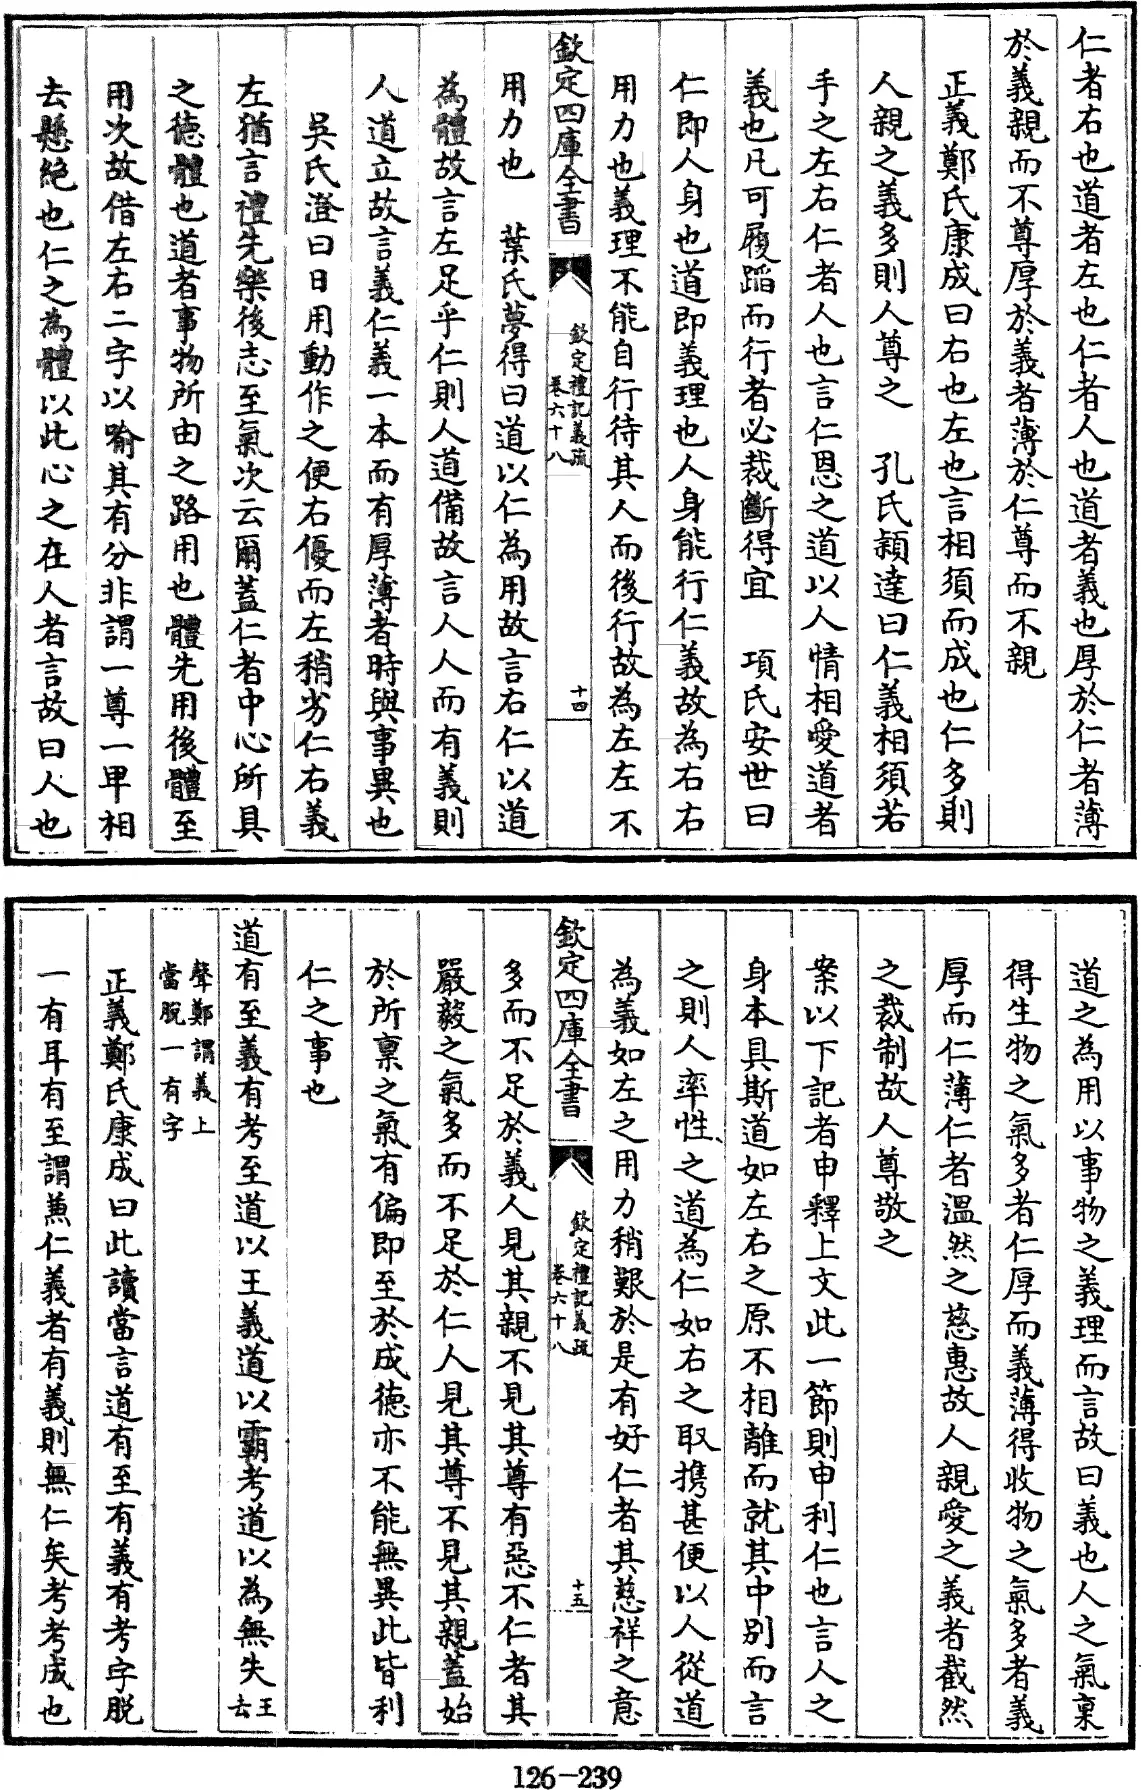 仁者右也道者左也仁者人也道者義也厚於仁者薄
於義親而不尊厚於義者薄於仁尊而不親
正義鄭氏康成曰右也左也言相須而成也仁多則
人親之義多則人尊之　孔氏穎達曰仁義相須若
手之左右仁者人也言仁恩之道以人情相愛道者
義也凡可履蹈而行者必裁斷得宜　項氏安世曰
仁即人身也道即義理也人身能行仁義故為右右
用力也義理不能自行待其人而後行故為左左不
欽定四庫全書
欽定禮記義疏
卷六十八
十四
用力也　葉氏夢得曰道以仁為用故言右仁以道
為體故言左足乎仁則人道備故言人人而有義則
人道立故言義仁義一本而有厚薄者時與事異也
吳氏澄曰日用動作之便右優而左稍劣仁右義
左猶言禮先樂後志至氣次云爾蓋仁者中心所具
之德體也道者事物所由之路用也體先用後體至
用次故借左右二字以喻其有分非謂一尊一卑相
去懸絕也仁之為體以此心之在人者言故曰人也
道之為用以事物之義理而言故曰義也人之氣稟
得生物之氣多者仁厚而義薄得收物之氣多者義
厚而仁薄仁者溫然之慈惠故人親愛之義者截然
之裁制故人尊敬之
案以下記者申釋上文此一節則申利仁也言人之
身本具斯道如左右之原不相離而就其中別而言
之則人率性之道為仁如右之取攜甚便以人從道
為義如左之用力稍艱於是有好仁者其慈祥之意
欽定四庫全書
欽定禮記義疏
卷六十八
十五
多而不足於義人見其親不見其尊有惡不仁者其
嚴毅之氣多而不足於仁人見其尊不見其親蓋始
於所稟之氣有偏即至於成德亦不能無異此皆利
仁之事也
道有至義有考至道以王義道以霸考道以為無失王去
聲鄭謂義上
當脫一有字
正義鄭氏康成曰此讀當言道有至有義有考字脫
一有耳有至謂兼仁義者有義則無仁矣考考成也
126-239